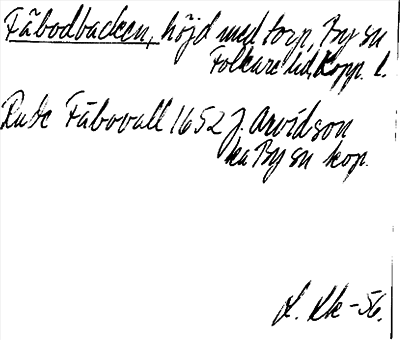 Fäbodbacken, höjd med torp, By sn
Folkare hd, Kopp. l.
Fäbovall 1652 J. Arvidson
ka By sn kop.